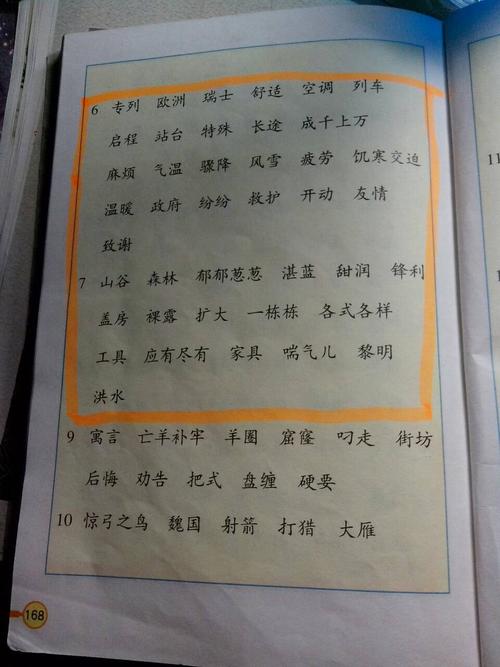 6 专列 欧洲 瑞士 舒适 空调 列车
启程 站台 特殊 长途 成千上万
麻烦 气温 骤降 风雪 疲劳 饥寒交迫
温暖 政府 纷纷 救护 开动 友情
致谢
7 山谷 森林 郁郁葱葱 湛蓝 甜润 锋利
盖房 裸露 扩大 一栋栋 各式各样
工具 应有尽有 家具 喘气儿 黎明
洪水
9 寓言 亡羊补牢 羊圈 窟窿 叼走 街坊
后悔 劝告 把式 盘缠 硬要
10 惊弓之鸟 魏国 射箭 打猎 大雁
168
11